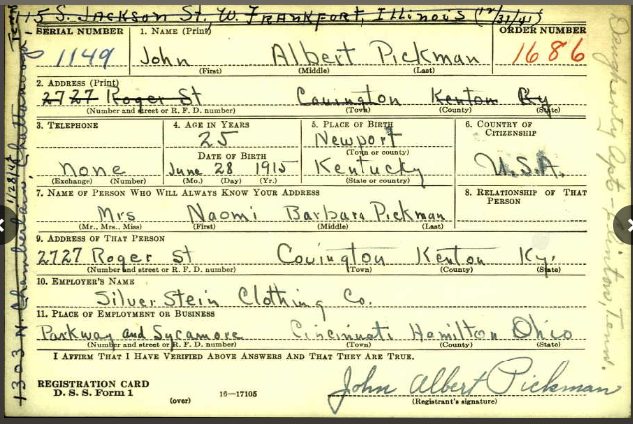 115 S. Jackson St. W. Frankfort, Illinois (12/31/41)
SERIAL NUMBER
1. NAME (Print)
ORDER NUMBER
S 1149
John Albert Pickman
1686
(First) (Middle) (Last)
2. ADDRESS (Print)
2727 Roger St Covington Kenton Ky
(Number and street or R. F. D. number) (Town) (County) (State)
3. TELEPHONE
4. AGE IN YEARS
5. PLACE OF BIRTH
6. COUNTRY OF CITIZENSHIP
25
Newport
(Town or county)
DATE OF BIRTH
none
June 28 1915
Kentucky
U.S.A.
(Exchange) (Number)
(Mo.) (Day) (Yr.)
(State or country)
7. NAME OF PERSON WHO WILL ALWAYS KNOW YOUR ADDRESS
8. RELATIONSHIP OF THAT PERSON
Mrs Naomi Barbara Pickman
(Mr., Mrs., Miss) (First) (Middle) (Last)
9. ADDRESS OF THAT PERSON
2727 Roger St Covington Kenton Ky.
(Number and street or R. F. D. number) (Town) (County) (State)
10. EMPLOYER'S NAME
Silverstein Clothing Co.
11. PLACE OF EMPLOYMENT OR BUSINESS
Parkway and Sycamore Cincinnati Hamilton Ohio
(Number and street or R. F. D. number) (Town) (County) (State)
I AFFIRM THAT I HAVE VERIFIED ABOVE ANSWERS AND THAT THEY ARE TRUE.
REGISTRATION CARD
D. S. S. Form 1
(over)
16—17105
John Albert Pickman
(Registrant's signature)
1303 N. Chamberlain, Chattanooga, Tenn
1/28/45
Daugherty Apts - Clinton, Tenn.